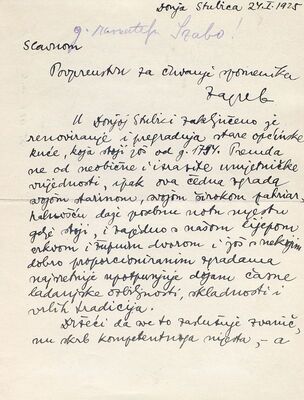 Donja Stubica 24.I.1925
g. ravnatelj Szabo!
Slavnom
Povjerenstvu za čuvanje spomenika
Zagreb
U Donjoj Stubici zaključeno je
renoviranje i pregradnja stare općinske
kuće, koja stoji još od g. 1784. Premda
ne od neobične i izrazite umjetničke
vrijednosti, ipak ova čedna zgrada
svojom starinom, svojom širokom patriar-
halnošću daje posebnu notu mjestu
gdje stoji, i zajedno s našom lijepom
crkvom i župnim dvorom i još s nekojim
dobro proporcioniranim zgradama
najsretnije upotpunjuje dojam časne
ladanjske ozbiljnosti, skladnosti i
vrlih tradicija.
Držeći da sve to zaslužuje zvanič-
nu skrb kompetentnoga mjesta, – a